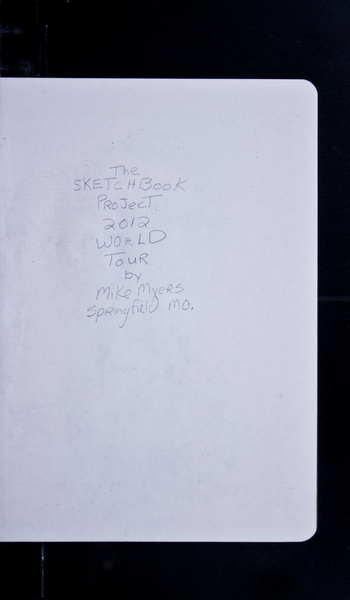 The
SKETCHBOOK
PROJECT
2012
WORLD
TOUR
by
Mike Myers
Springfield MO.